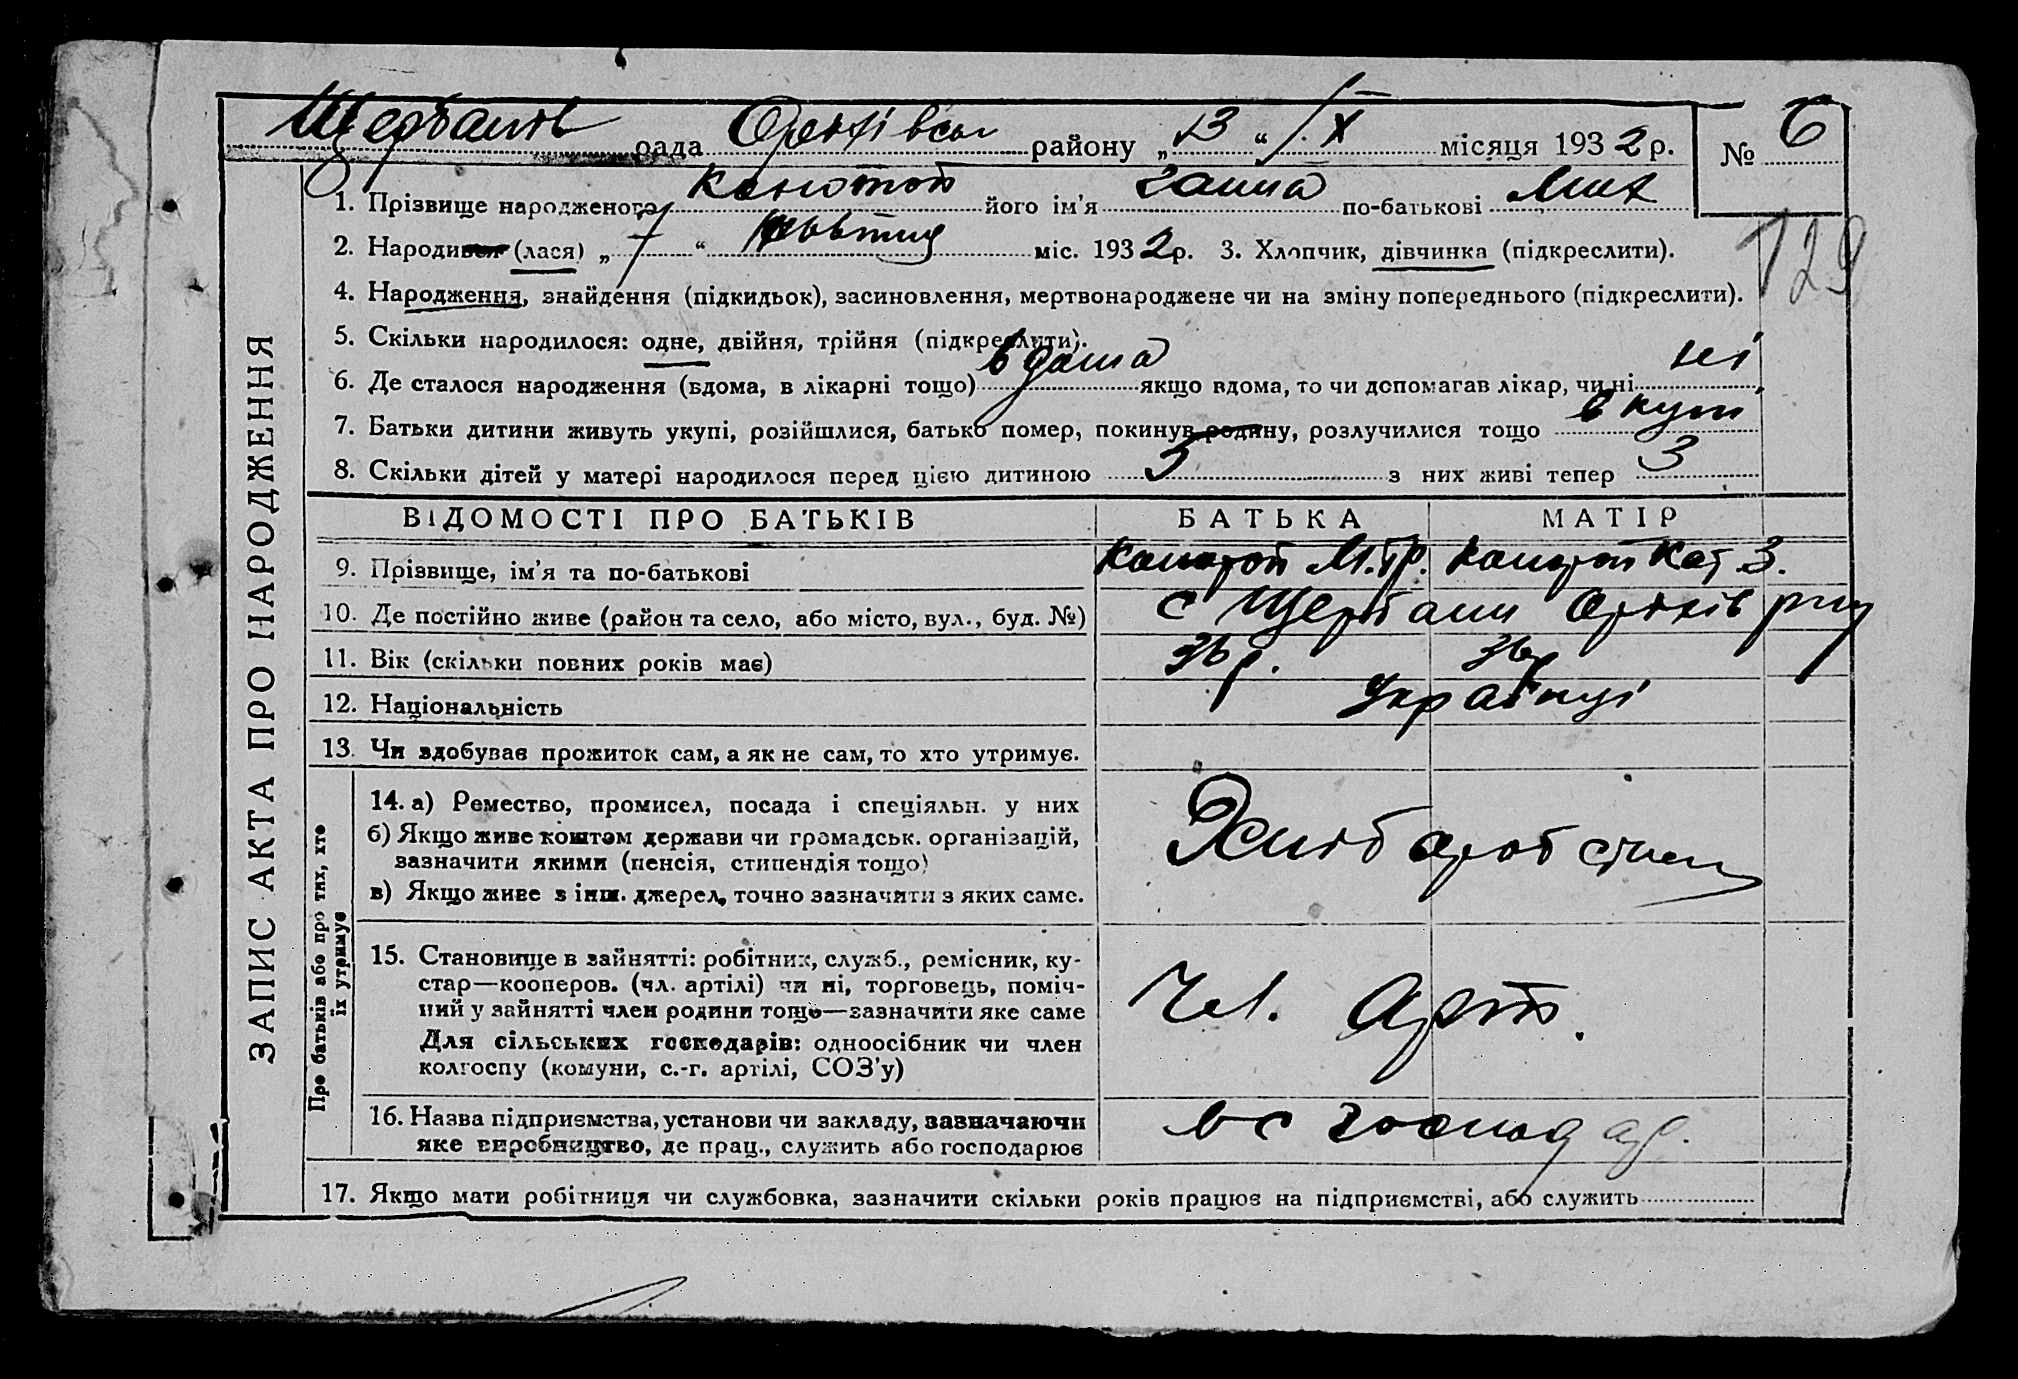 рада району „13“ X місяця 1932 р. № 6
1. Прізвище народженого його ім'я Ганна по-батькові Мих
129
2. Народився (лася) „7“ жовтня міс. 1932 р. 3. Хлопчик, дівчинка (підкреслити).
4. Народження, знайдення (підкидьок), засиновлення, мертвонароджене чи на зміну попереднього (підкреслити).
5. Скільки народилося: одне, двійня, трійня (підкреслити).
6. Де сталося народження (вдома, в лікарні тощо) вдома якщо вдома, то чи допомагав лікар, чи ні ні
7. Батьки дитини живуть укупі, розійшлися, батько помер, покинув родину, розлучилися тощо вкупі
8. Скільки дітей у матері народилося перед цією дитиною 5 з них живі тепер 3
ЗАПИС АКТА ПРО НАРОДЖЕННЯ
ВІДОМОСТІ ПРО БАТЬКІВ БАТЬКА МАТІР
9. Прізвище, ім'я та по-батькові
10. Де постійно живе (район та село, або місто, вул., буд. №) с Щербани
11. Вік (скільки повних років має) 36 р.
12. Національність Українці
13. Чи здобував прожиток сам, а як не сам, то хто утримує.
Про батьків або про тих, хто їх утримує
14. а) Ремество, промисел, посада і спеціяльн. у них
б) Якщо живе коштом держави чи громадськ. організацій,
зазначити якими (пенсія, стипендія тощо)
в) Якщо живе з інш. джерел, точно зазначити з яких саме.
15. Становище в зайнятті: робітник, служб., ремісник, ку-
стар—кооперов. (чл. артілі) чи ні, торговець, поміч-
ний у зайнятті член родини тощо—зазначити яке саме
Для сільських господарів: одноосібник чи член
колгоспу (комуни, с.-г. артілі, СОЗ'у)
Чл. Арт.
16. Назва підприємства, установи чи закладу, зазначаючи
яке виробництво, де прац., служить або господарює
в с господар.
17. Якщо мати робітниця чи службовка, зазначити скільки років працює на підприємстві, або служить